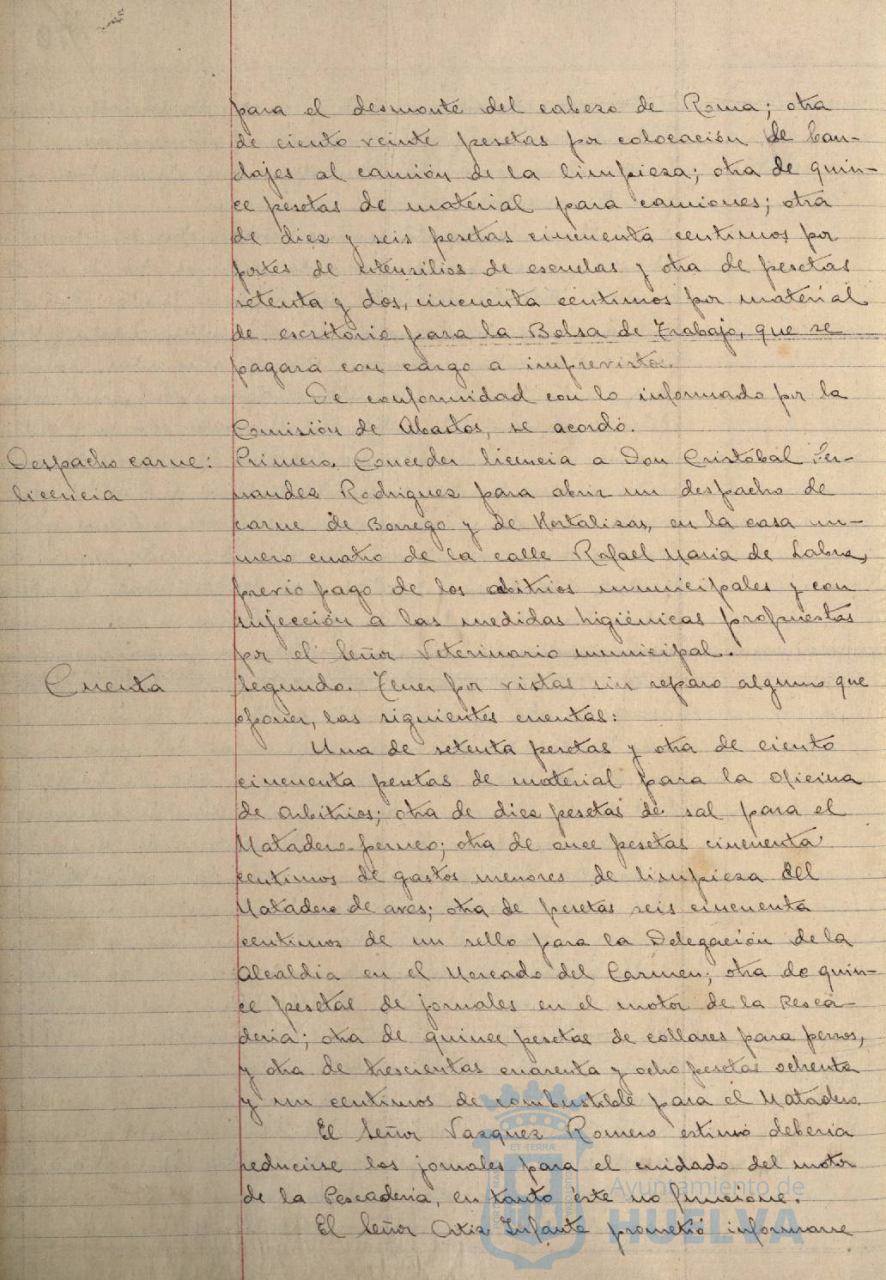 para el desmonte del cabezo de Roma; otra
de ciento veinte pesetas por colocación de ban-
dajes al camión de la limpieza; otra de quin-
ce pesetas de material para camiones; otra
de diez y seis pesetas cincuenta centimos por
portes de utensilios de escuelas y otra de pesetas
setenta y dos, cincuenta centimos por material
de escritorio para la Bolsa de Trabajo, que se
pagará con cargo a imprevistos.
De conformidad con lo informado por la
Comisión de Abastos, se acordó.
Despacho carne:
licencia
Primero. Conceder licencia a Don Cristóbal Fer-
nandez Rodriguez para abrir un despacho de
carne de Borrego y de Hortalizas, en la casa nu-
mero cuatro de la calle Rafael Maria de Labra,
previo pago de los arbitrios municipales y con
sujección a las medidas higiénicas propuestas
por el Señor Veterinario municipal.
Cuenta
Segundo. Tener por vistas sin reparo alguno que
oponer, las siguientes cuentas:
Una de setenta pesetas y otra de ciento
cincuenta pesetas de material para la oficina
de Arbitrios; otra de diez pesetas de sal para el
Matadero perneo; otra de once pesetas cincuenta
centimos de gastos menores de limpieza del
Matadero de aves; otra de pesetas seis cincuenta
centimos de un sello para la Delegación de la
Alcaldia en el Mercado del Carmen; otra de quin-
ce pesetas de jornales en el motor de la Pesca-
deria; otra de quince pesetas de collares para perros,
y otra de trescientas cuarenta y ocho pesetas ochenta
y un centimos de combustible para el Matadero.
El Señor Vazquez Romero estimó deberia
reducirse los jornales para el cuidado del motor
de la Pescaderia, en tanto éste no funcione.
El Señor Ortiz Infante prometió informarse
ET TERRA
Ayuntamiento de
HUELVA